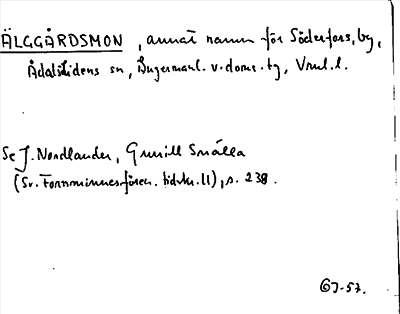 ÄLGGÅRDSMON, annat namn för Söderfors, by,
Ådalslidens sn, Ångermanl. v. doms. tg, Vnrl. l.
Se J. Nordlander, Gunill Snälla
(Sv. Fornminnesfören. tidskr. 11), s. 238.
GJ-57.